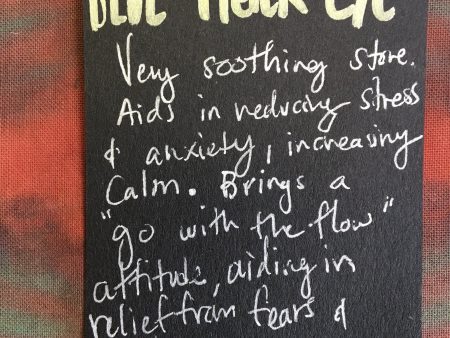 BLUE Agate
Very soothing stone.
Aids in reducing stress
& anxiety, increasing
Calm. Brings a
"go with the flow"
attitude, aiding in
relief from fears &